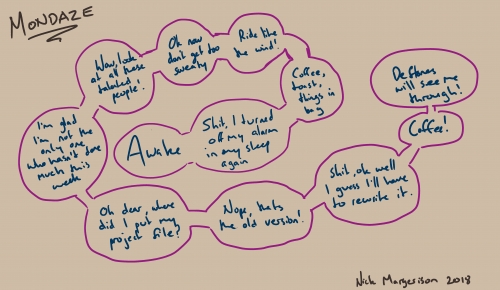 MONDAZE
Awake
Shit, I turned
off my alarm
in my sleep
again
Coffee,
toast,
things in
bag
Ride like
the wind!
Oh now
don't get too
sweaty
Wow, look
at all these
talented
people!
I'm glad
I'm not the
only one
who hasn't done
much this
week
Oh dear, where
did I put my
project file?
Nope, that's
the old version!
Shit, oh well
I guess I'll have
to rewrite it.
Coffee!
Deftones
will see me
through!
Nick Margerison 2018